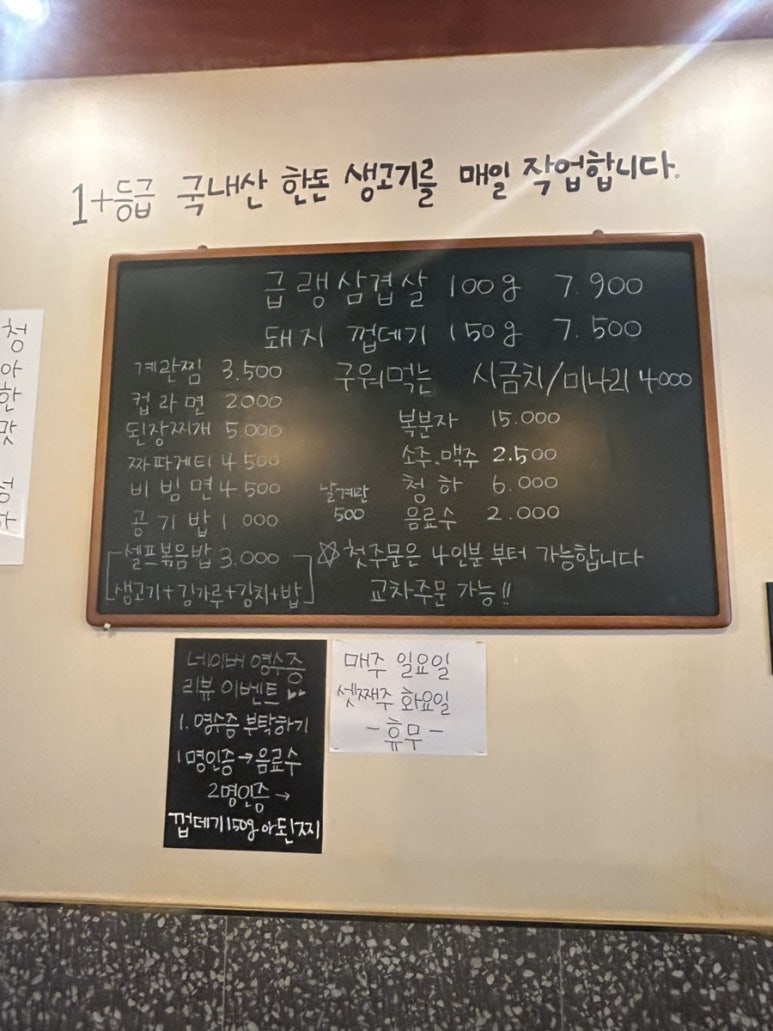 1+등급 국내산 한돈 생고기를 매일 작업합니다.
급랭삼겹살 100g 7.900
돼지 껍데기 150g 7.500
계란찜 3.500
컵라면 2000
된장찌개 5.000
짜파게티 4.500
비빔면 4.500
공기밥 1.000
셀프볶음밥 3.000
생고기+김가루+김치+밥
구워먹는 시금치/미나리 4000
복분자 15.000
소주.맥주 2.500
청하 6.000
음료수 2.000
날계란
500
☆첫주문은 4인분 부터 가능합니다
교차주문 가능!!
청
아
한
맛
네이버 영수증
리뷰 이벤트
1. 영수증 부탁하기
1명인증→음료수
2명인증→
껍데기150g or 된찌
매주 일요일
셋째주 화요일
-휴무-